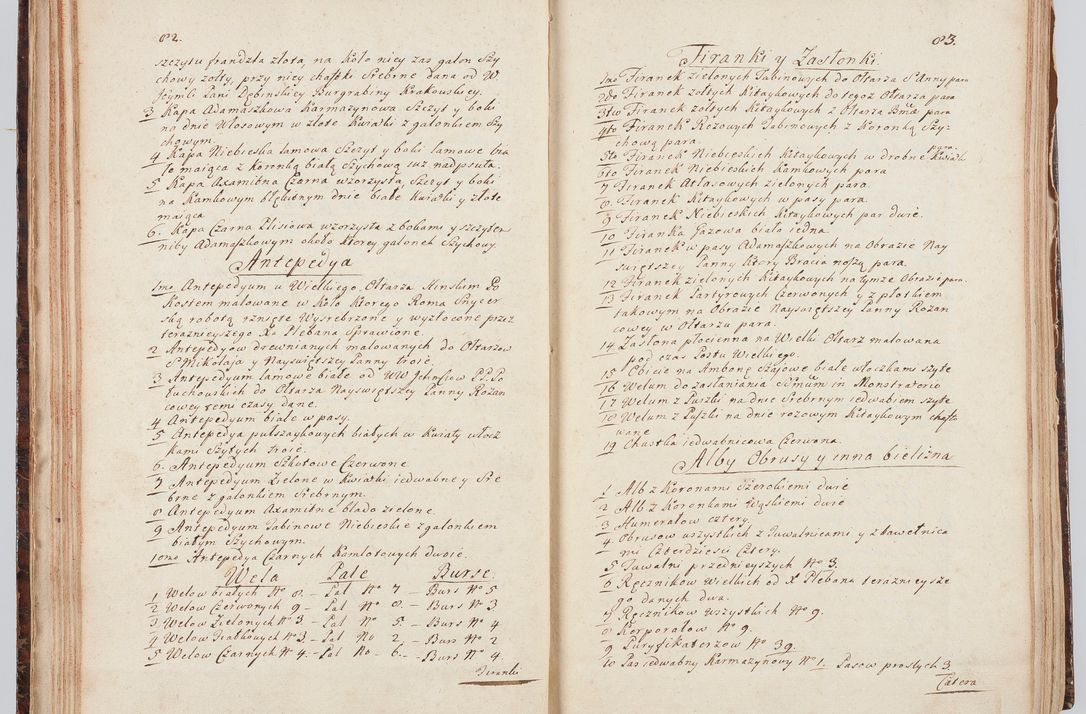 82.
szczytu frandzla złota, na koło niey zas galon Szy
chowy zołty, przy niey chaftki Srebrne dana od W
Jeymći Pani Dębinskiey Burgrabiny Krakowskiey.
3 Kapa Adamaszkowa Karmazynowa Szczyt y boki
na dnie Włosowym w złote Kwiatki z galonkiem Szy
chowym.
4 Kapa Niebieska lamowa Szczyt y boki lamowe bia
łe maiąca z koronką białą Szychową iuz nadpsuta.
5 Kapa Axamitna Czarna wzorzysta, Szczyt y boki
na Kamkowym błękitnym dnie białe kwiatki y złote
maiąca
6. Kapa Czarna Plisiowa wzorzysta z bokami y szczytem
niby Adamaszkowym około ktorey galonek Szychowy.
Antepedya
1mo Antepedyum u Wielkiego Ołtarza Hinskim Po
kostem malowane w koło ktorego Roma Snycer
ską robotą rznięte Wysrebrzone y wyzłocone przez
teraznieyszego Xa Plebana Sprawione.
2 Antepedyow drewnianych malowanych do Ołtarzow
S Mikołaja y Nayswiętszey Panny troie.
3 Antepedyum lamowe białe od WW Jchmćiow PP Po
tuchowskich do Ołtarza Nayswiętszey Panny Rożan
cowey temi czasy dane.
4 Antepedyum białe w pasy.
5 Antepedya pułszaykowych białych w kwiaty włocz
kami Szytych troie.
6. Antepedyum Szkotowe Czerwone.
7 Antepedyum Zielone w kwiatki iedwabne y Sre
brne z galonkiem Srebrnym.
8 Antepedyum Axamitne blado zielone.
9 Antepedyum Tabinowe Niebieskie z galonkiem
białym Szychowym.
10mo Antepedya Czarnych Kamlotowych dwoie.
Wela Pale Burse.
1 Welow białych No 8. – Pal No 7 – Burs No 5
2 Welow Czerwonych 9 – Pal No 8. – Burs No 3
3 Welow Zielonych No 3 – Pal No 5. – Burs No 4
4 Welow Fiałkowych No 3 – Pal No 2. – Burs No 2
5 Welow Czarnych No 4. – Pal No – 6. – Burs No 4.
Firanki
83.
Firanki y Zasłonki.
1mo Firanek zielonych Tabinowych do Ołtarza S Anny para
2do Firanek zołtych Kitaykowych do tegoz Ołtarza para
3tio Firanek zołtych Kitaykowych z Ołtarza Bmæ para
4to Firanek Rozowych Tabinowych z Koronką Szy-
chową para.
5to Firanek Niebieskich Kitaykowych w drobne kwiatki para.
6to Firanek Niebieskich Kamkowych para
7 Firanek Atlasowych zielonych para.
8. Firanek Kitaykowych w pasy para.
9 Firanek Niebieskich Kitaykowych par dwie.
10 Firanka Gazowa biała iedna.
11 Firanek w pasy Adamaszkowych na Obrazie Nay
swiętszey Panny ktory Bracia noszą para.
12 Firanek zielonych Kitaykowych na tymze Obrazie para.
13 Firanek Partyrowych Czerwonych y z płotkiem
takowym na Obrazie Nayswiętszey Panny Rożan
cowey w Ołtarzu para.
14 Zasłona płocienna na Wielki Ołtarz malowana
pod czas Postu Wielkiego.
15 Obicie na Ambonę Szajowe białe włoczkami szyte
16 Welum do zasłaniania Smum in Monstratorio
17 Welum z Puszki na dnie Srebrnym iedwabiem szyte
18 Welum z Puszki na dnie rozowym Kitaykowym chafto
wane
19 Chustka iedwabnicowa Czerwona.
Alby Obrusy y inna bielizna
1 Alb z Koronami Szerokiemi dwie
2 Alb z Koronkami Wąskiemi dwie
3 Humerałow cztery.
4. Obrusow wszystkich z Tuwalnicami y z ławeтnica
mi Czterdziesci Cztery.
5 Tuwalni przednieyszych No 3.
6 Ręcznikow Wielkich od X Plebana teraznieysze
go danych dwa.
7 Ręcznikow wszystkich No 9.
8 Korporałow No 9.
9 Puryfikaterzow No 39.
10 Pas iedwabny Karmazynowy No 1. Pasow prostych 3.
Catera